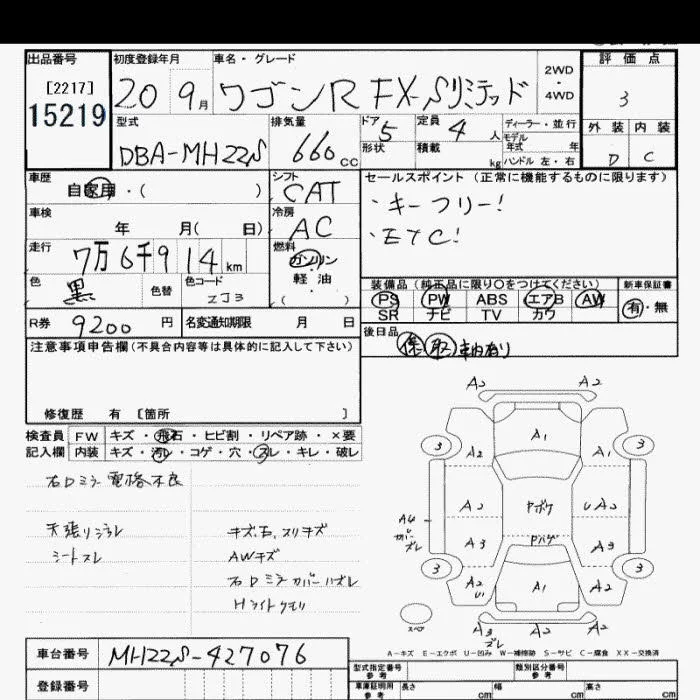 出品番号 初度登録年月 車名・グレード 評価点
[2217]
15219 20 9月 ワゴンR FX-Sリミテッド 2WD・4WD 3
型式 排気量 ドア 5 定員 4人 ディーラー・並行 外装 内装
DBA-MH22S 660cc 形状 積載 kg モデル年式 年 ハンドル 左・右 D C
車歴 自家用・( ) シフト CAT セールスポイント(正常に機能するものに限ります)
車検 年 月( 日) 冷房 AC ・キーフリー!
・ETC!
走行 7万6千914km 燃料 ガソリン 軽油 ( )
色 黒 色替 色コード ZJ3
装備品(純正品に限り○をつけてください) 新車保証書
PS PW ABS エアB AW 有・無
SR ナビ TV カワ
R券 9200円 名変通知期限 月 日
後日品 保 取 車内有り
注意事項申告欄(不具合内容等は具体的に記入して下さい)
修復歴 有 [箇所 ]
検査員 FW キズ・飛石・ヒビ割・リペア跡・×要
記入欄 内装 キズ・汚レ・コゲ・穴・スレ・キレ・破レ
右Dミラー電格不良
天張リシミ スレ
シートスレ
キズ、石、スリキズ
AWキズ
右Dミラーカバーハズレ
Hライトクモリ
A2 A2
3 A2 A1 A2 3
A4 A2 Pボケ UA2
U カバーズレ
A3 Pハゲ A3
3 A2 U A1 A2 3
スペア A3 ズレ A2
A-キズ E-エクボ U-凹み W-補修跡 S-サビ C-腐食 XX-交換済
車台番号 MH22S-427076
登録番号
型式指定番号 参考 類別区分番号 参考
車庫証明用 参考 長さ cm 幅 cm 高さ cm